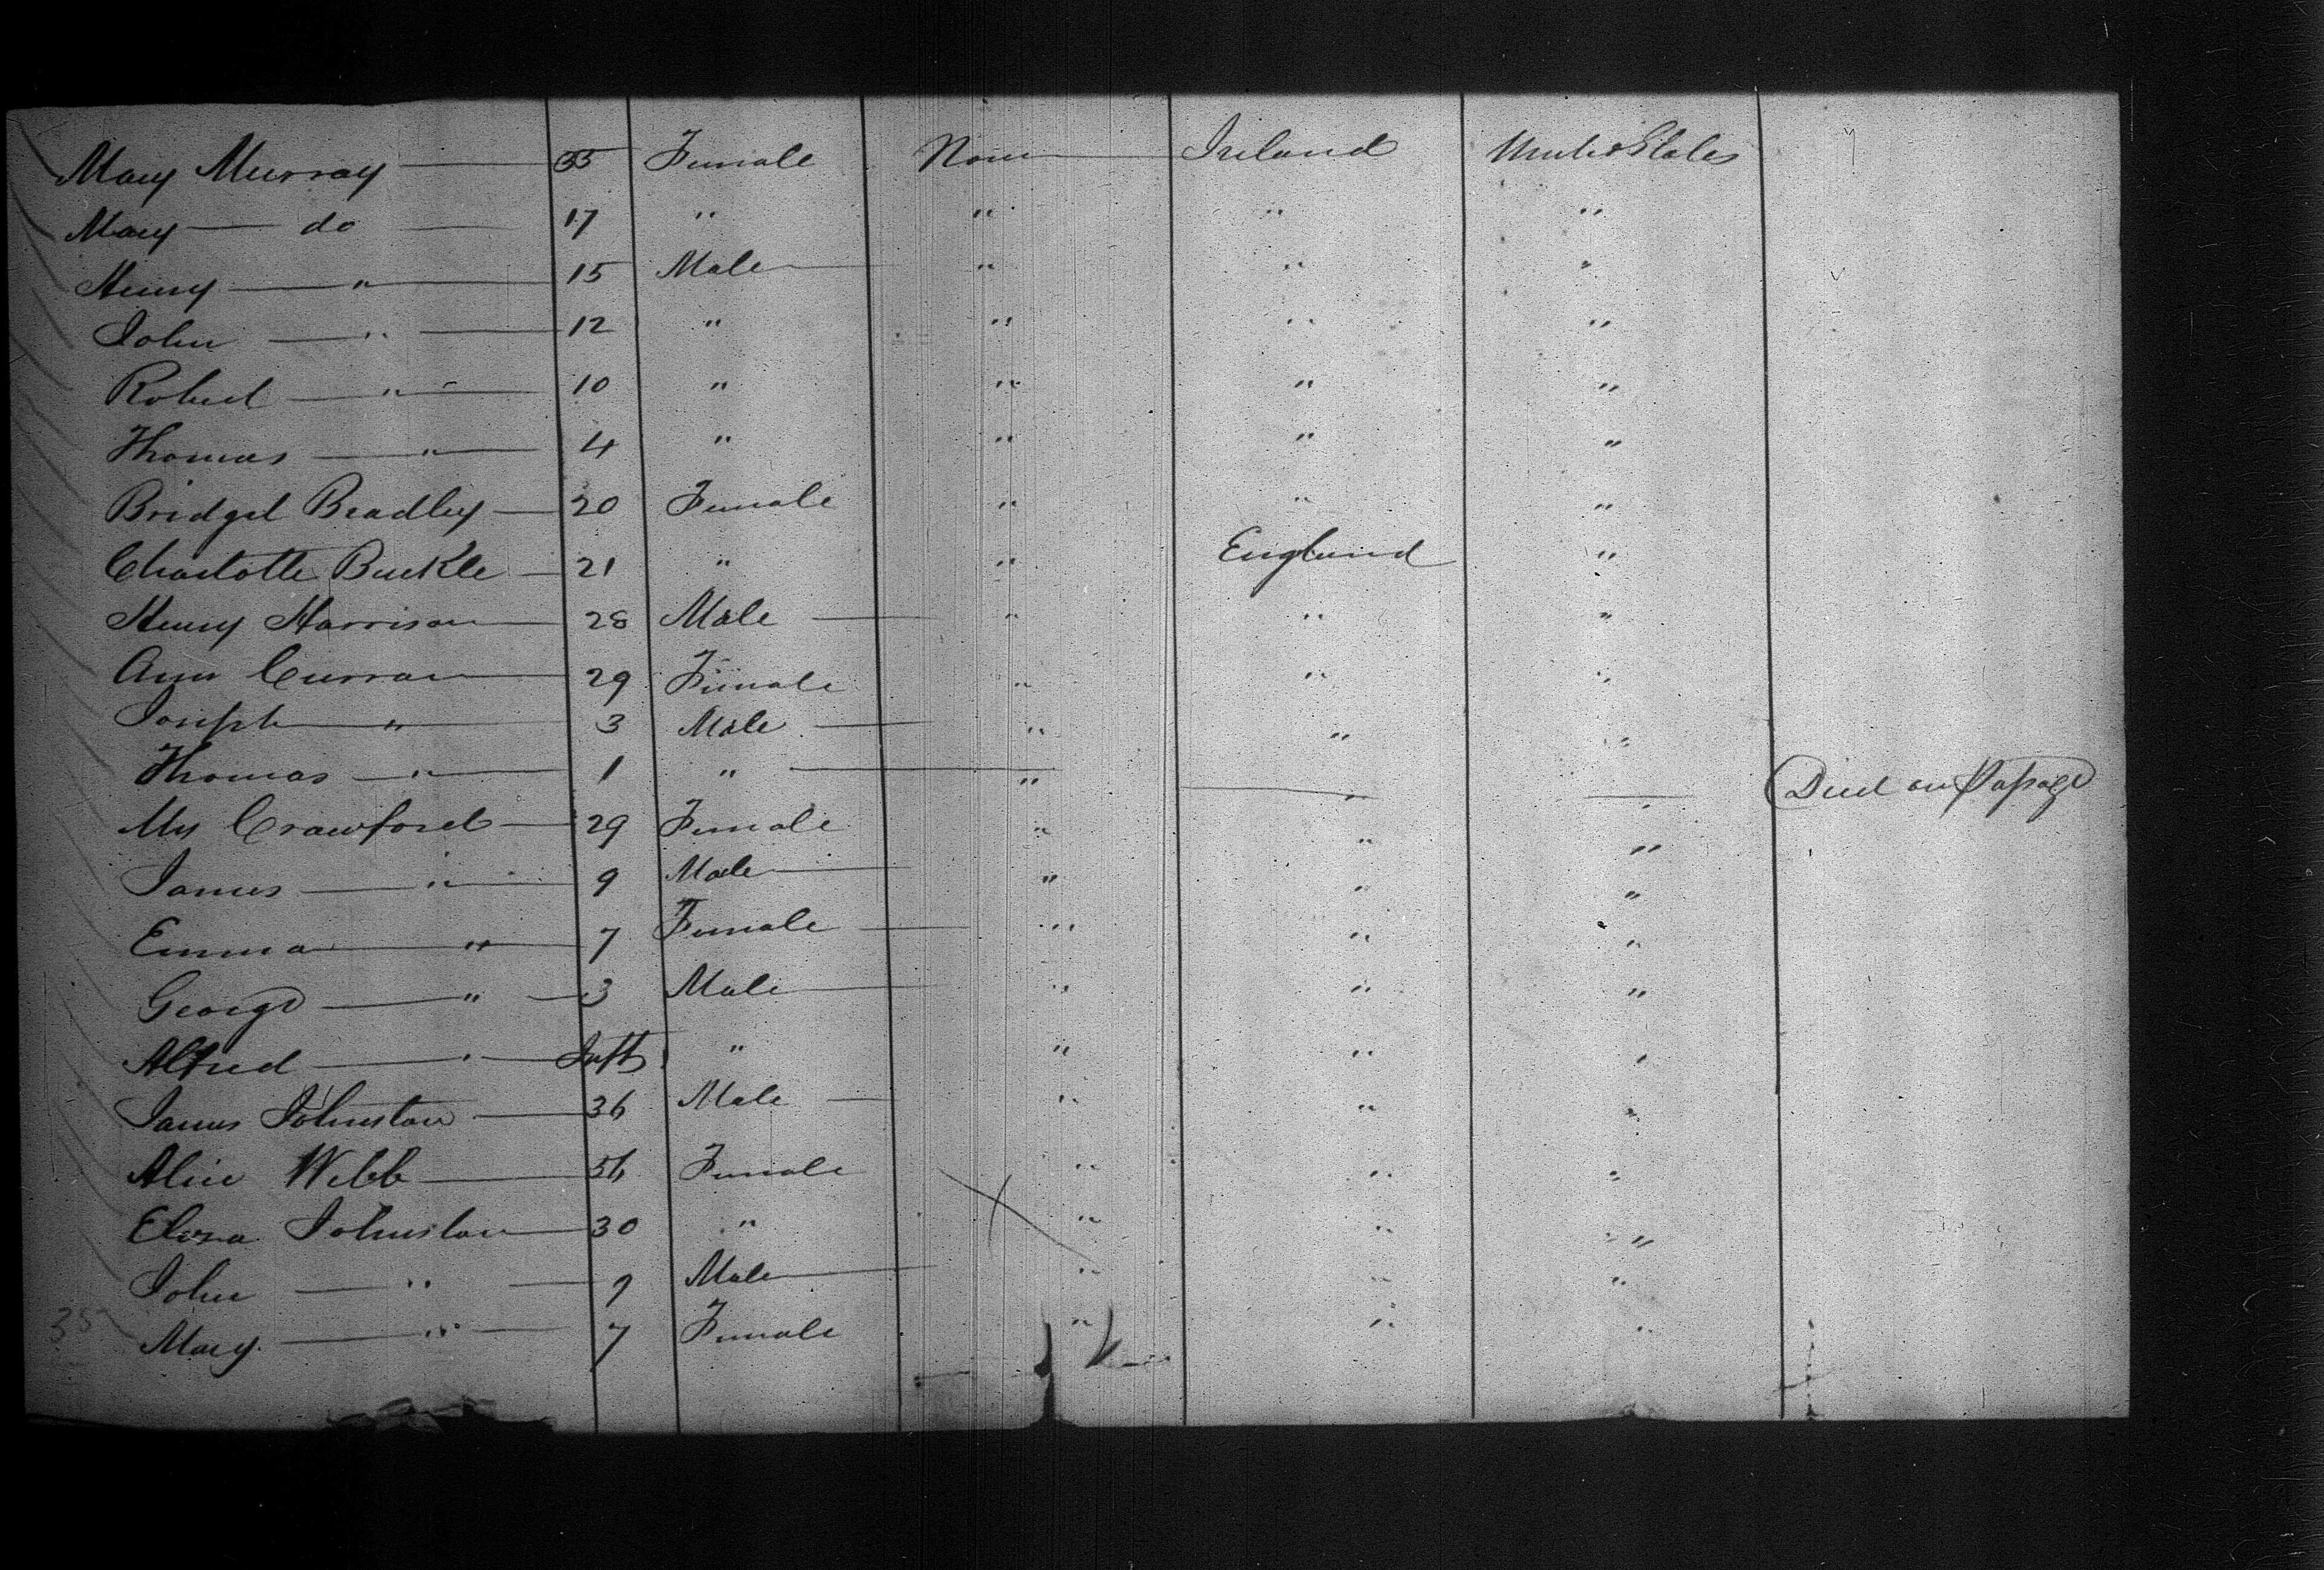 Mary Murray 35 Female None Ireland United States
Mary do 17 " " " "
Henry " 15 Male " " "
John " 12 " " " "
Robert " 10 " " " "
Thomas " 4 " " " "
Bridget Bradley 20 Female " " "
Charlotte Buckle 21 " " England "
Henry Harrison 28 Male " " "
Ann Curran 29 Female " " "
Joseph " 3 Male " " "
Thomas " 1 " " " " Died on Passage
Mrs Crawford 29 Female " " "
James " 9 Male " " "
Emma " 7 Female " " "
George " 3 Male " " "
Alfred " Inft " " " "
James Johnston 36 Male " " "
Alice Webb 56 Female " " "
Eliza Johnston 30 " " " "
John " 9 Male " " "
Mary " 7 Female " " "